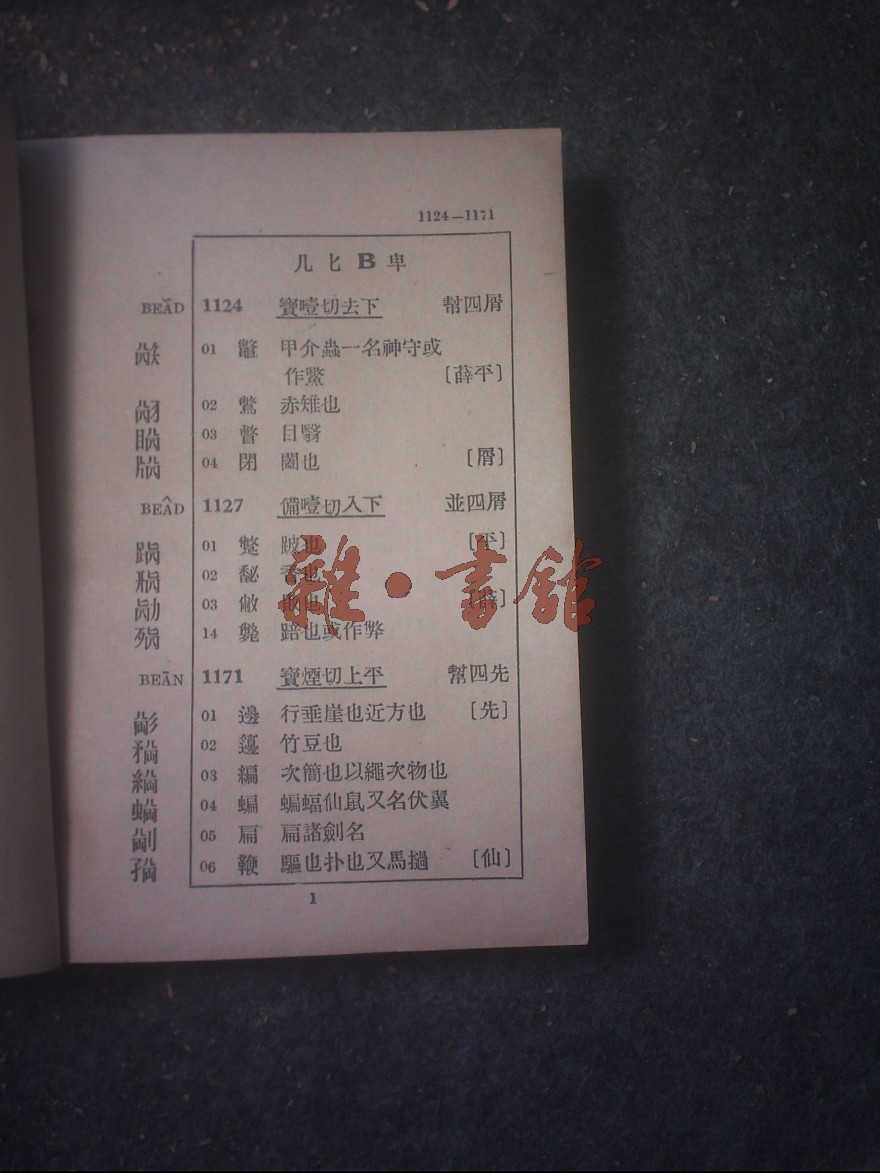 1124—1171
几 匕 B 卑
BEĂD 1124 寶噎切去下 幫四屑
01 鼈 甲介蟲一名神守或
作鱉 〔薛平〕
02 鷩 赤雉也
03 瞥 目翳
04 閉 闔也 〔屑〕
BEÂD 1127 備噎切入下 並四屑
01 蹩 跛也 〔平〕
02 馝 香也
03 敝 也 〔薛〕
14 斃 踣也或作弊
BEĀN 1171 寶煙切上平 幫四先
01 邊 行垂崖也近方也 〔先〕
02 籩 竹豆也
03 編 次簡也以繩次物也
04 蝙 蝙蝠仙鼠又名伏翼
05 扁 扁諸劍名
06 鞭 驅也扑也又馬撾 〔仙〕
1
雜·書館